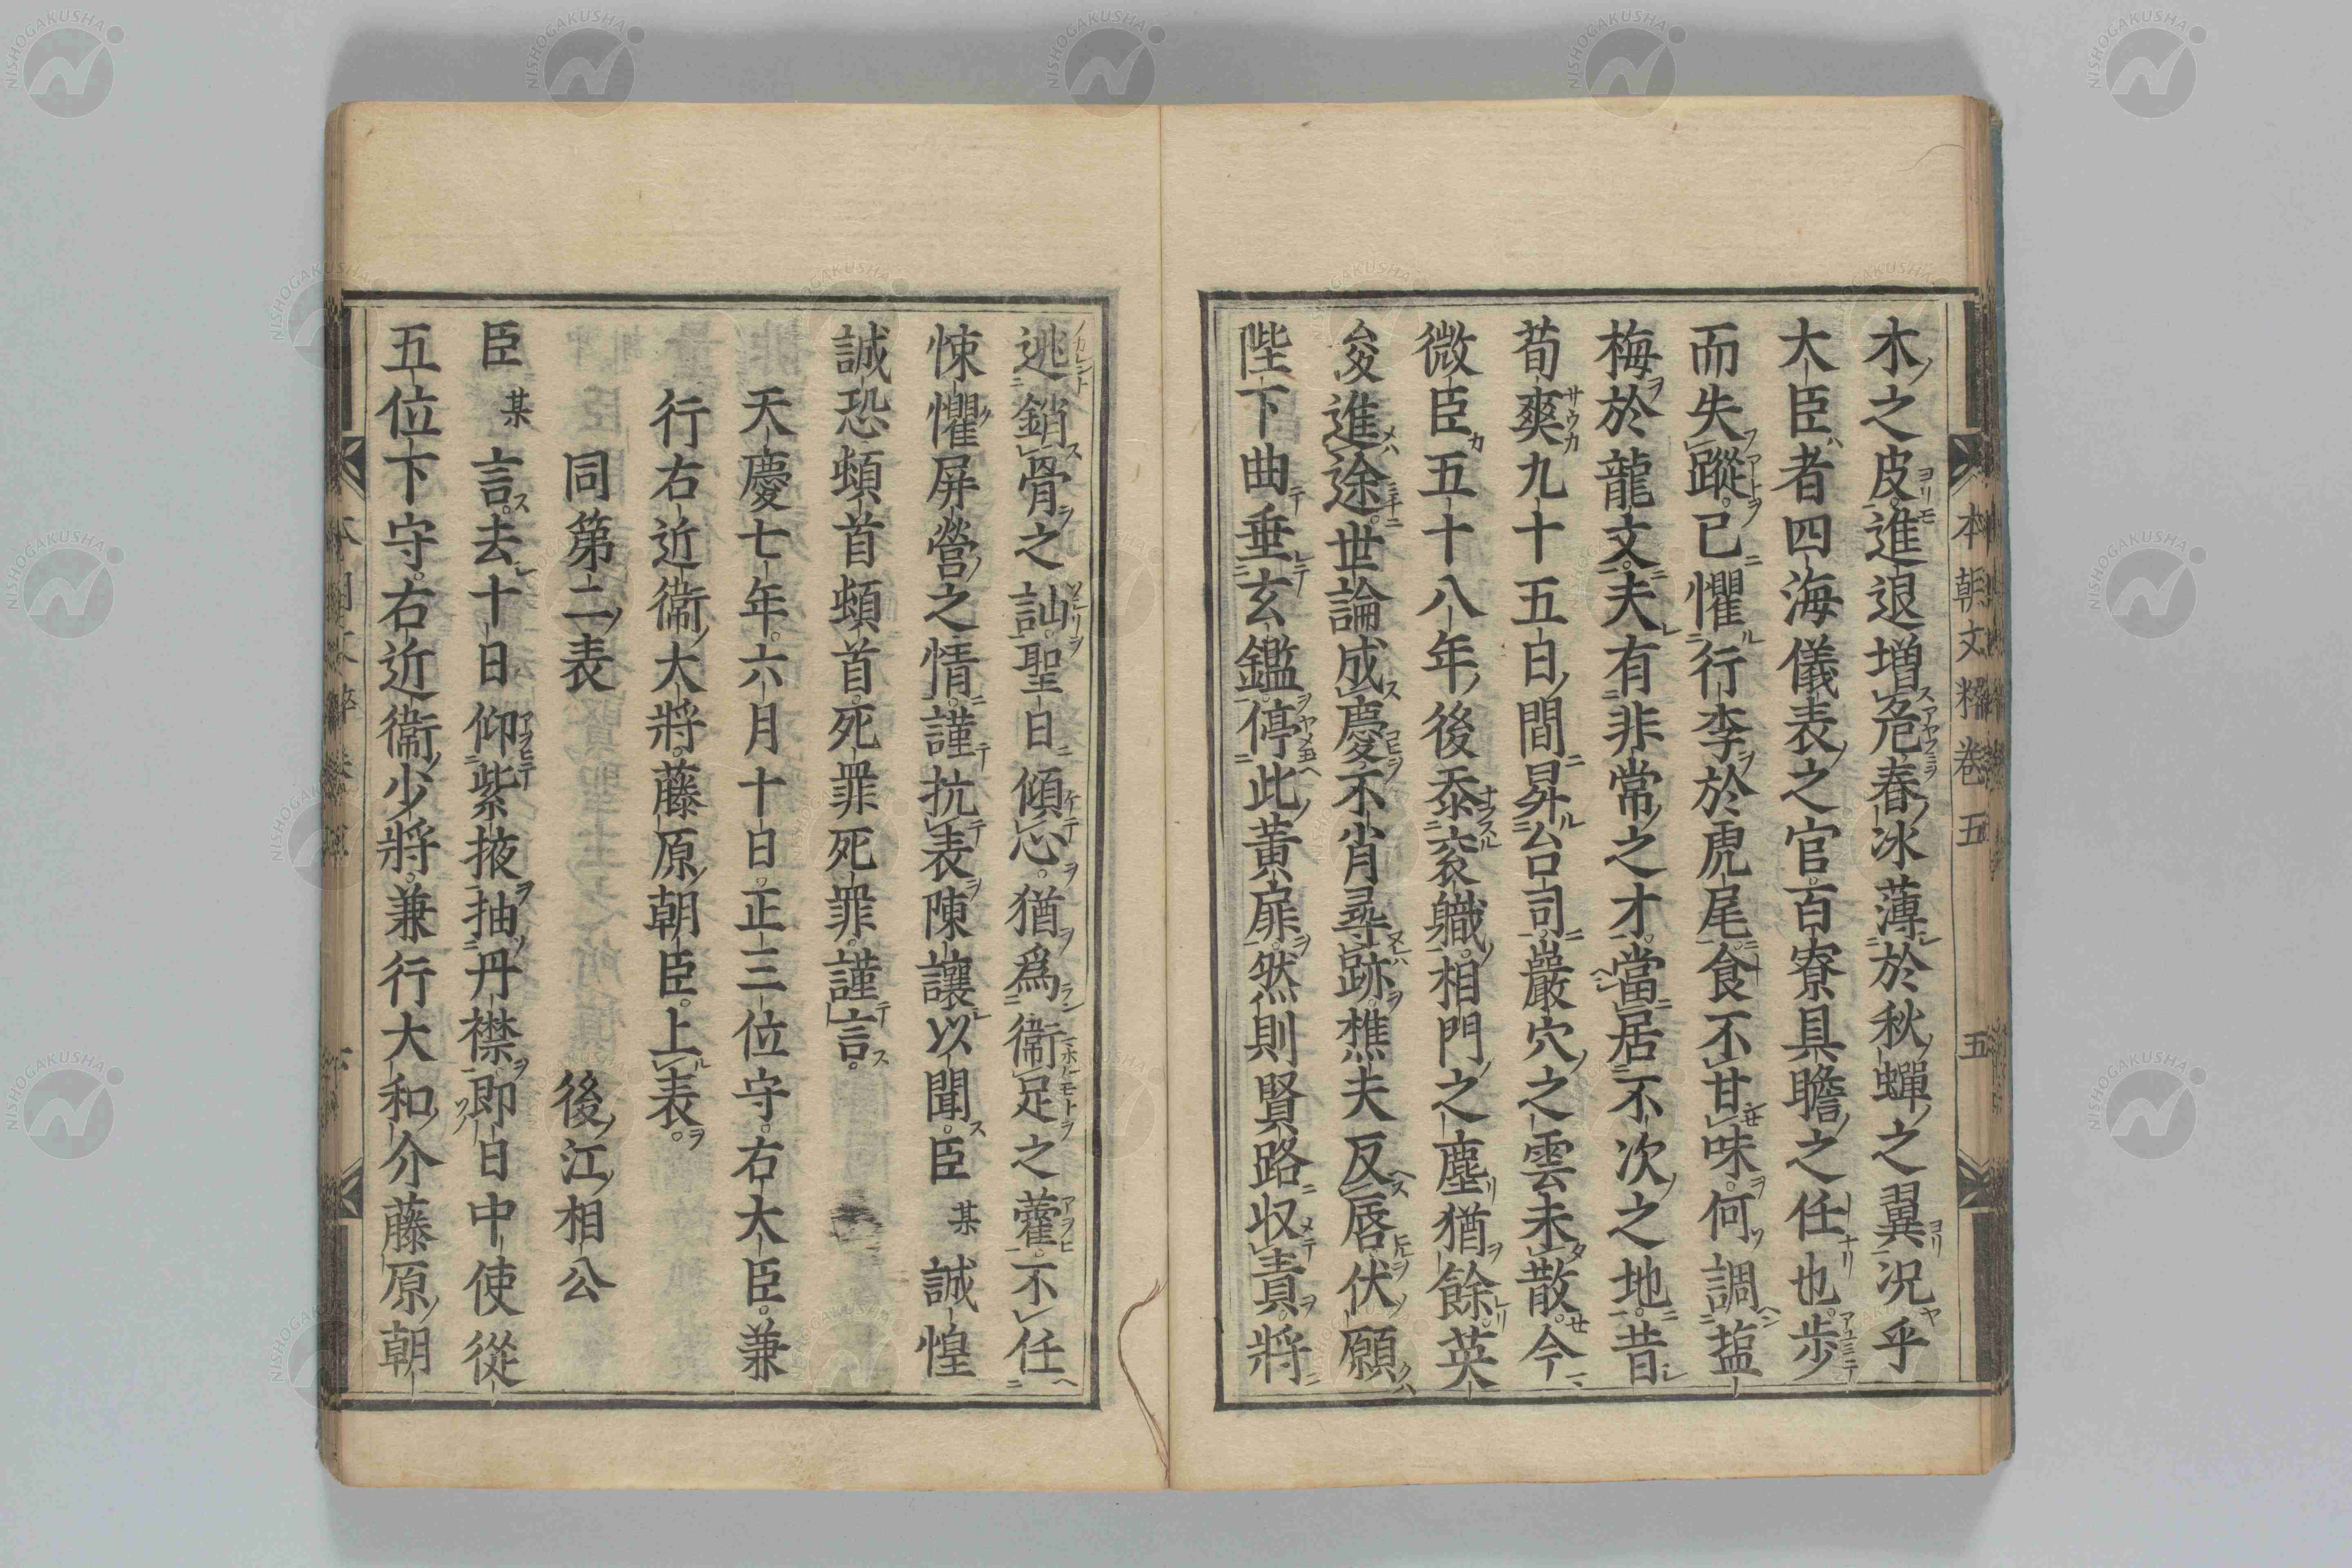 木之皮進退増危春冰薄於秋蟬之翼况乎
大臣者四海儀表之官百寮具瞻之任也歩
而失蹤已懼行李於虎尾食不甘味何調塩
梅於龍文夫有非常之才當居不次之地昔
荀爽九十五日間昇台司巖穴之雲未散今
微臣五十八年後忝衮職相門之塵猶餘英
㑺進途世論成慶不肖尋跡樵夫反唇伏願
陛下曲垂玄鑑停此黄扉然則賢路収責將
逃銷骨之訕聖日傾心猶爲衞足之藿不任
悚懼屏營之情謹抗表陳讓以聞臣某誠惶
誠恐頓首頓首死罪死罪謹言
天慶七年六月十日正三位守右大臣兼
行右近衞大將藤原朝臣上表
同第二表　後江相公
臣某言去十日仰紫掖抽丹襟即日中使從
五位下守右近衞少將兼行大和介藤原朝
本朝文粹卷五　五
NISHOGAKUSHA